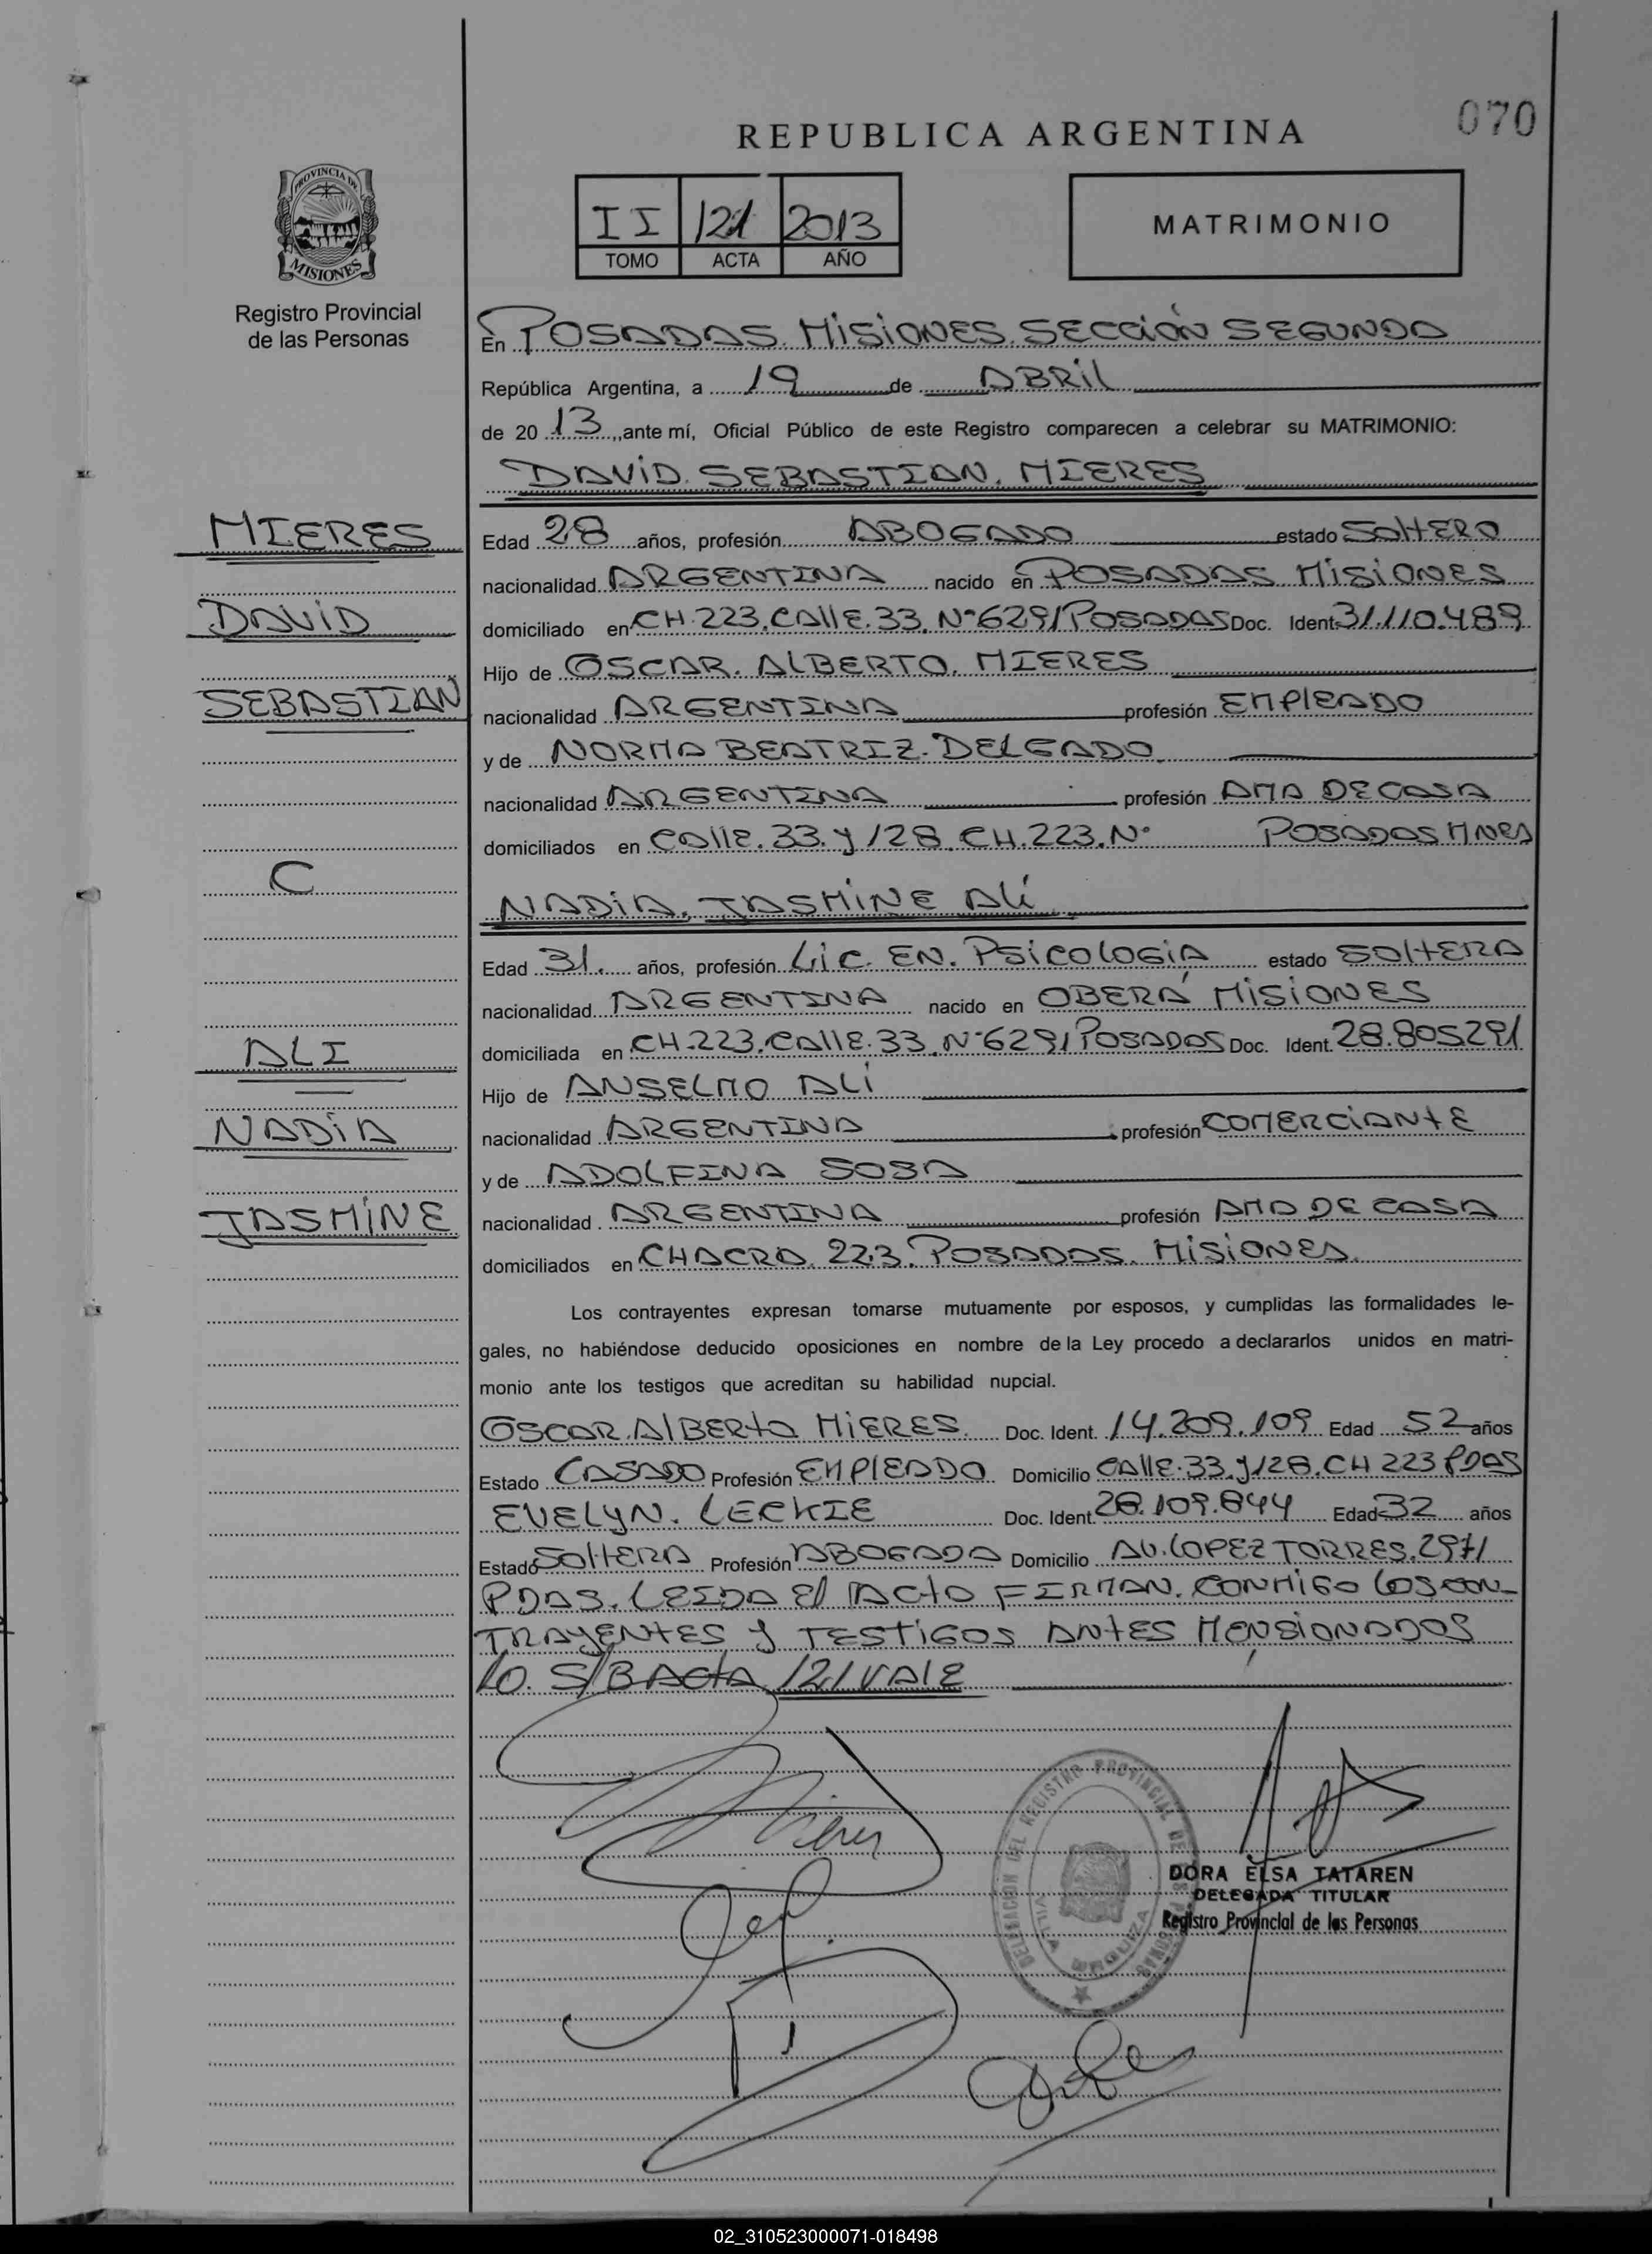 070
REPUBLICA ARGENTINA
PROVINCIA DE MISIONES
Registro Provincial
de las Personas
II 121 2013
TOMO ACTA AÑO
MATRIMONIO
En POSADAS. MISIONES. SECCIÓN SEGUNDA
República Argentina, a 19 de ABRIL
de 20 13, ante mí, Oficial Público de este Registro comparecen a celebrar su MATRIMONIO:
DAVID. SEBASTIAN. MIERES
MIERES
DAVID
SEBASTIAN
C
Edad 28 años, profesión ABOGADO estado SOLTERO
nacionalidad ARGENTINA nacido en POSADAS MISIONES
domiciliado en CH.223.CALLE.33.N°6291 POSADAS Doc. Ident. 31.110.489
Hijo de OSCAR. ALBERTO. MIERES
nacionalidad ARGENTINA profesión EMPLEADO
y de NORMA BEATRIZ. DELGADO
nacionalidad ARGENTINA profesión AMA DE CASA
domiciliados en CALLE.33.y 128.CH.223.N° POSADAS MNES
NADIA, JASMINE ALÍ
ALI
NADIA
JASMINE
Edad 31. años, profesión Lic. EN. PSICOLOGÍA estado SOLTERA
nacionalidad ARGENTINA nacido en OBERÁ MISIONES
domiciliada en CH.223.CALLE.33.N°6291 POSADAS Doc. Ident. 28.805291
Hijo de ANSELMO ALÍ
nacionalidad ARGENTINA profesión COMERCIANTE
y de ADOLFINA SOSA
nacionalidad ARGENTINA profesión AMA DE CASA
domiciliados en CHACRA. 223. POSADAS. MISIONES.
Los contrayentes expresan tomarse mutuamente por esposos, y cumplidas las formalidades le-
gales, no habiéndose deducido oposiciones en nombre de la Ley procedo a declararlos unidos en matri-
monio ante los testigos que acreditan su habilidad nupcial.
OSCAR.ALBERTO MIERES. Doc. Ident. 14.209.109 Edad 52 años
Estado CASADO Profesión EMPLEADO Domicilio CALLE.33.y 128.CH 223 PDAS
EVELYN. LECKIE Doc. Ident. 28.109.844 Edad 32 años
Estado SOLTERA Profesión ABOGADA Domicilio AV.LOPEZ TORRES.2971
PDAS. LEIDA El ACTA FIRMAN. CONMIGO LOS CON-
TRAYENTES Y TESTIGOS ANTES MENSIONADOS
LO. S/B Acta 121 VALE
DELEGACION DEL REGISTRO PROVINCIAL DE LAS PERSONAS
VILLA URQUIZA
DORA ELSA TATAREN
DELEGADA TITULAR
Registro Provincial de las Personas
02_310523000071-018498